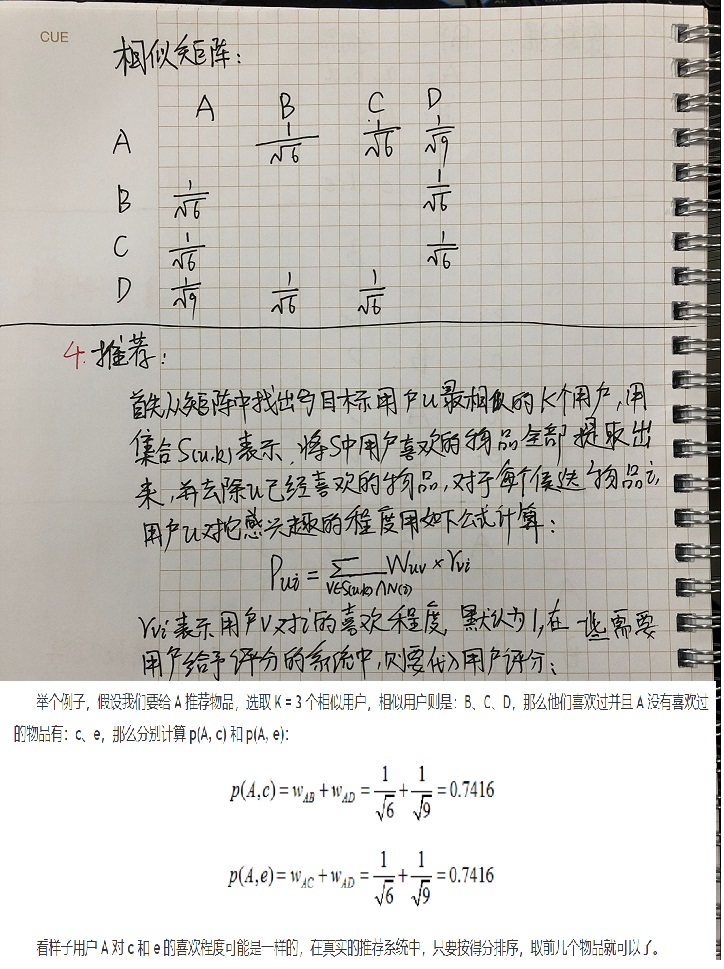 CUE
相似矩阵:
A B C D
A 1/√6 1/√6 1/√9
B 1/√6 1/√6
C 1/√6 1/√6
D 1/√9 1/√6 1/√6
4. 推荐:
首先从矩阵中找出与目标用户u最相似的K个用户,用
集合S(u,k)表示,将S中用户喜欢的物品全部提取出
来,并去除u已经喜欢的物品,对于每个候选物品i,
用户u对它感兴趣的程度用如下公式计算:
Pui = ∑ V∈S(u,k)∩N(i) Wuv × rvi
rvi表示用户V对i的喜欢程度,默认为1,在一些需要
用户给予评分的系统中,则要代入用户评分;
举个例子,假设我们要给 A 推荐物品,选取 K = 3 个相似用户,相似用户则是:B、C、D,那么他们喜欢过并且 A 没有喜欢过
的物品有:c、e,那么分别计算 p(A, c) 和 p(A, e):
p(A,c) = wAB + wAD = 1/√6 + 1/√9 = 0.7416
p(A,e) = wAC + wAD = 1/√6 + 1/√9 = 0.7416
看样子用户 A 对 c 和 e 的喜欢程度可能是一样的,在真实的推荐系统中,只要按得分排序,取前几个物品就可以了。